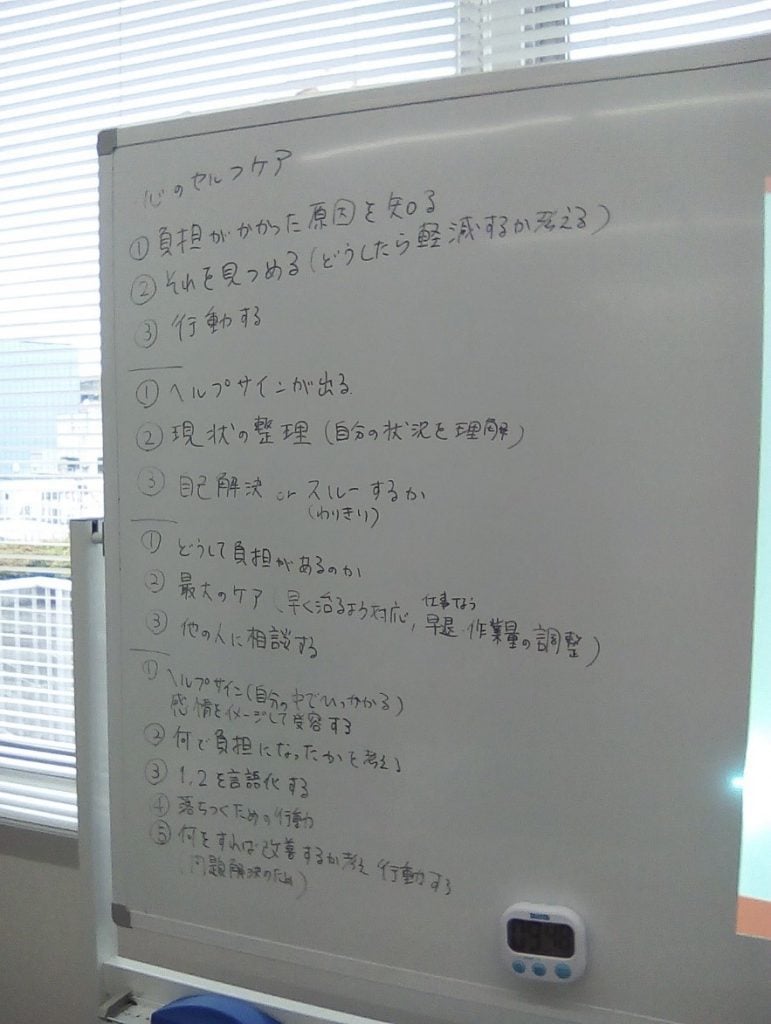 心のセルフケア
①負担がかかった原因を知る
②それを見つめる(どうしたら軽減するか考える)
③行動する
①ヘルプサインが出る
②現状の整理(自分の状況を理解)
③自己解決 or スルーするか
(わりきり)
①どうして負担があるのか
仕事なら
②最大のケア(早く治るよう対応,早退・作業量の調整)
③他の人に相談する
①ヘルプサイン(自分の中でひっかかる)
感情をイメージして受容する
②何で負担になったかを考える
③1,2を言語化する
④落ちつくための行動
⑤何をすれば改善するか考え 行動する
(問題解決のため)
TANITA